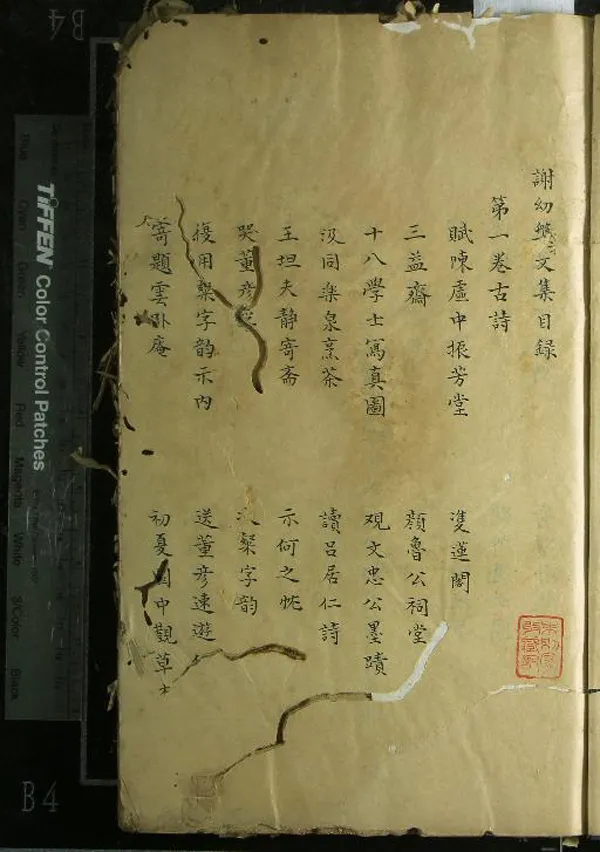 謝幼槃文集目錄
第一卷古詩
賦陳虛中振芳堂 雙蓮閣
三益齋 顏魯公祠堂
十八學士寫真圖 观文忠公墨蹟
汲同樂泉烹茶 讀呂居仁詩
王坦夫靜寄斋 示何之忱
哭董彦 粲字韵
復用粲字韵示内 送董彦速遊
寄題雲卧庵 初夏 中觀草
B4
TIFFEN Color Control Patches
Blue Cyan Green Yellow Red Magenta White 3/Color Black
B4